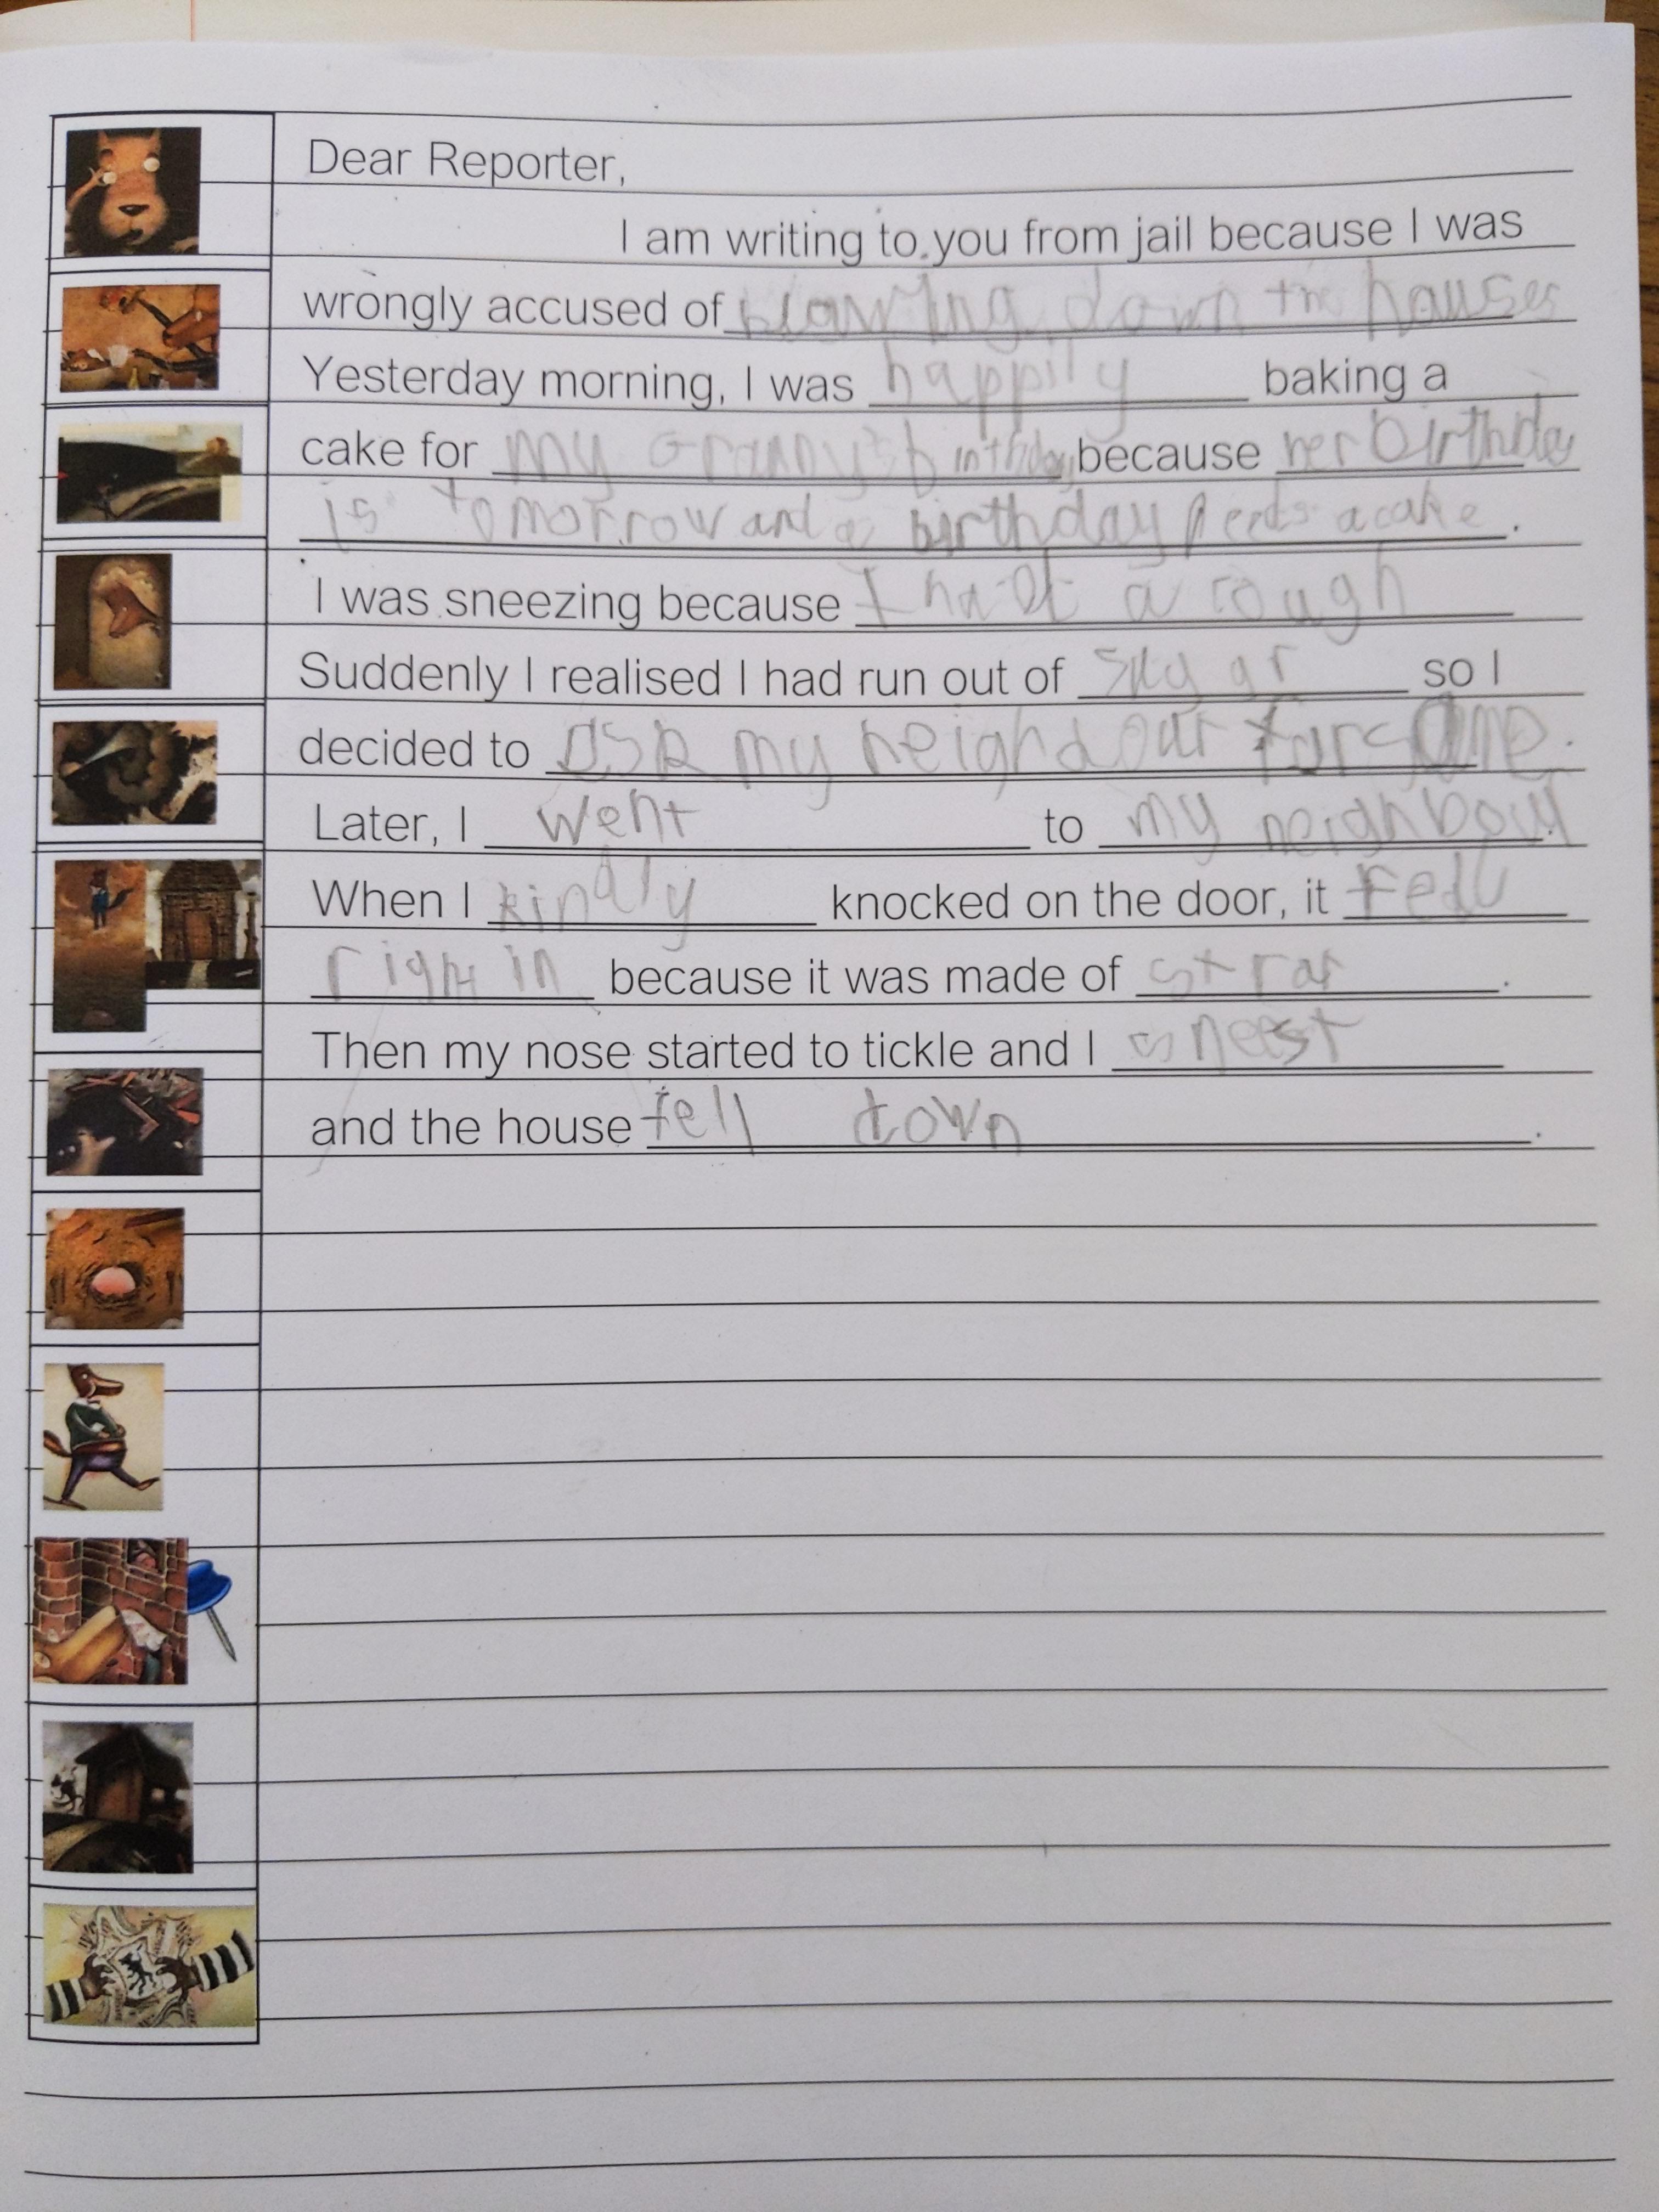 Dear Reporter,
I am writing to you from jail because I was
wrongly accused of blowing down the houses
Yesterday morning, I was happily baking a
cake for my Granny's birthday because her birthday
is tomorrow and a birthday needs a cake.
I was sneezing because I had a cough
Suddenly I realised I had run out of sugar so I
decided to ask my neighdour for some.
Later, I went to my neighbour.
When I kindly knocked on the door, it fell
right in because it was made of strar.
Then my nose started to tickle and I sneest
and the house fell down.